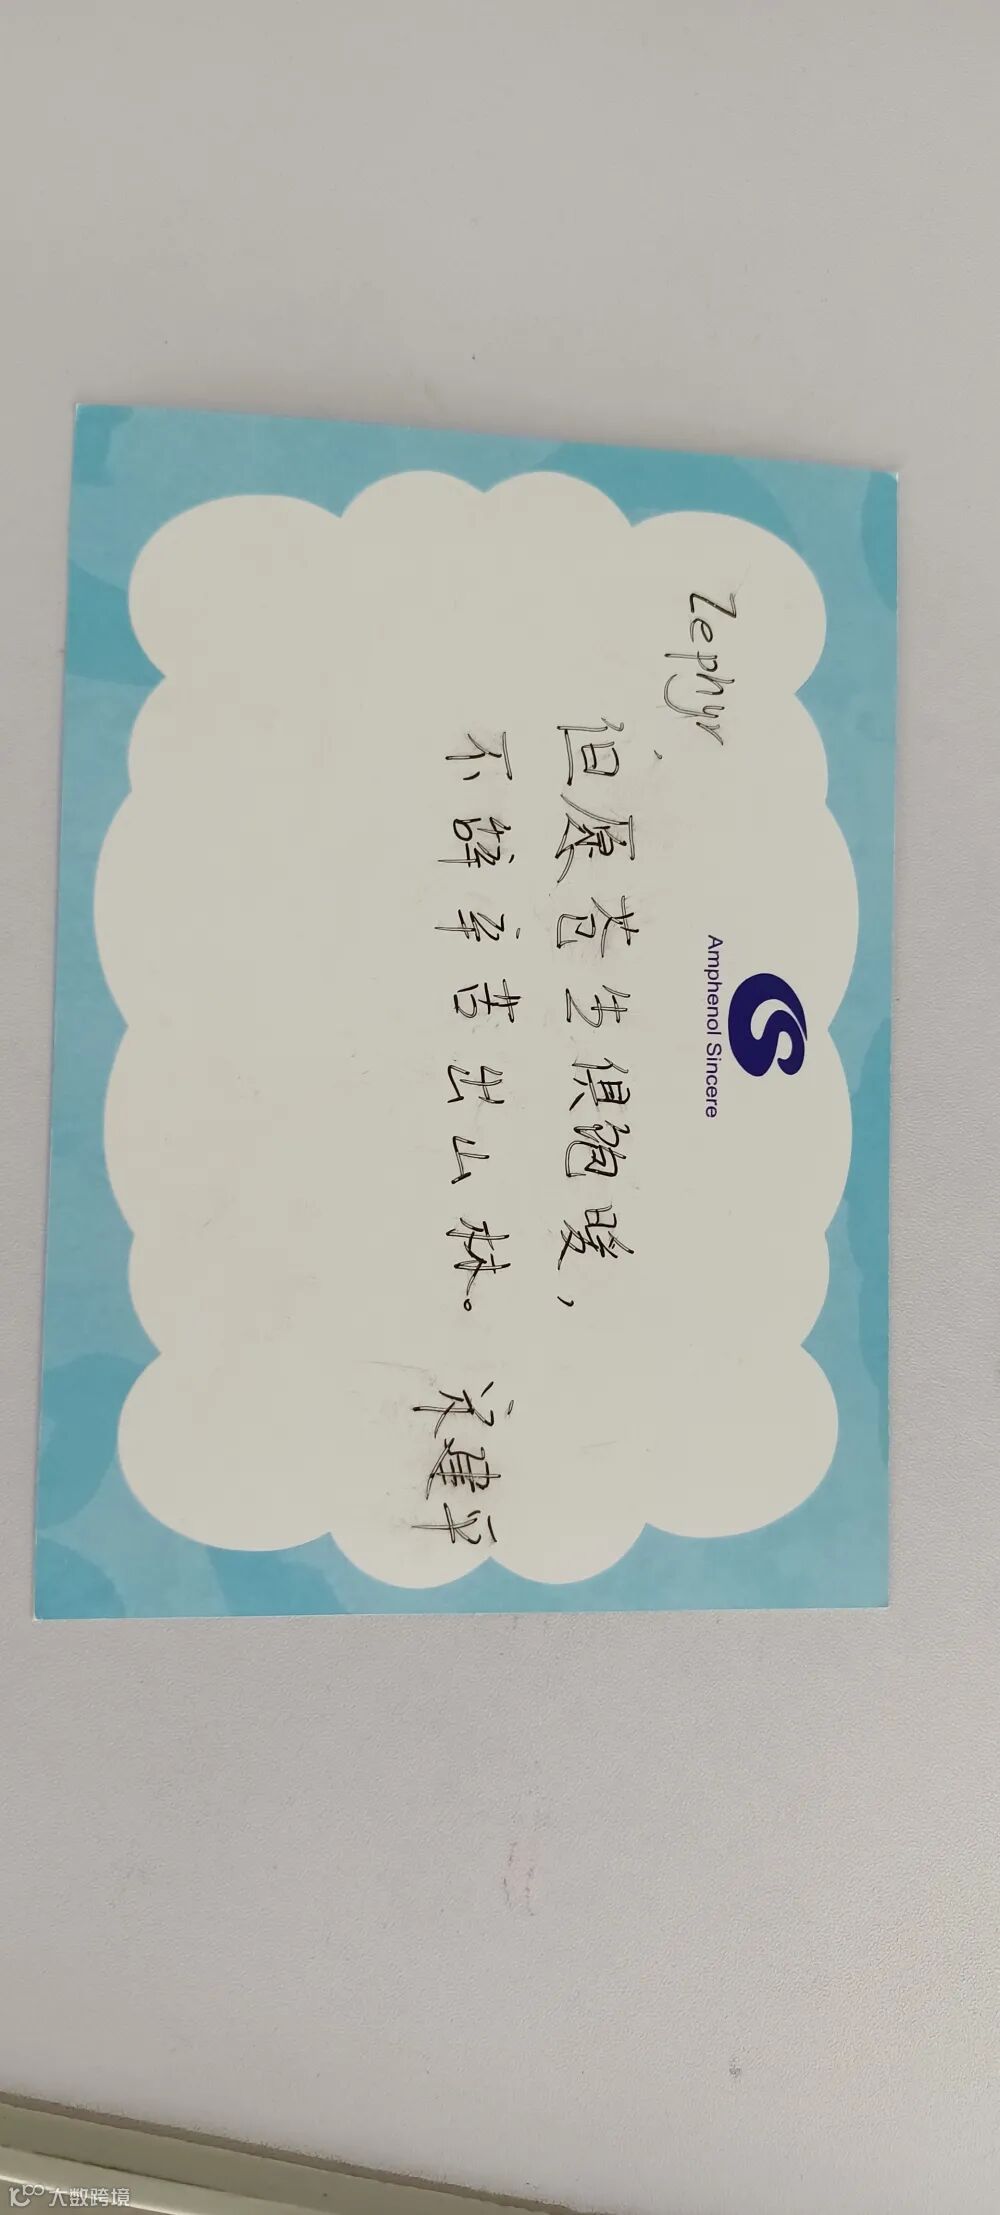 Amphenol Sincere
Zephyr
但愿苍生俱饱暖，
不辞辛苦出山林。
建平
大数跨境